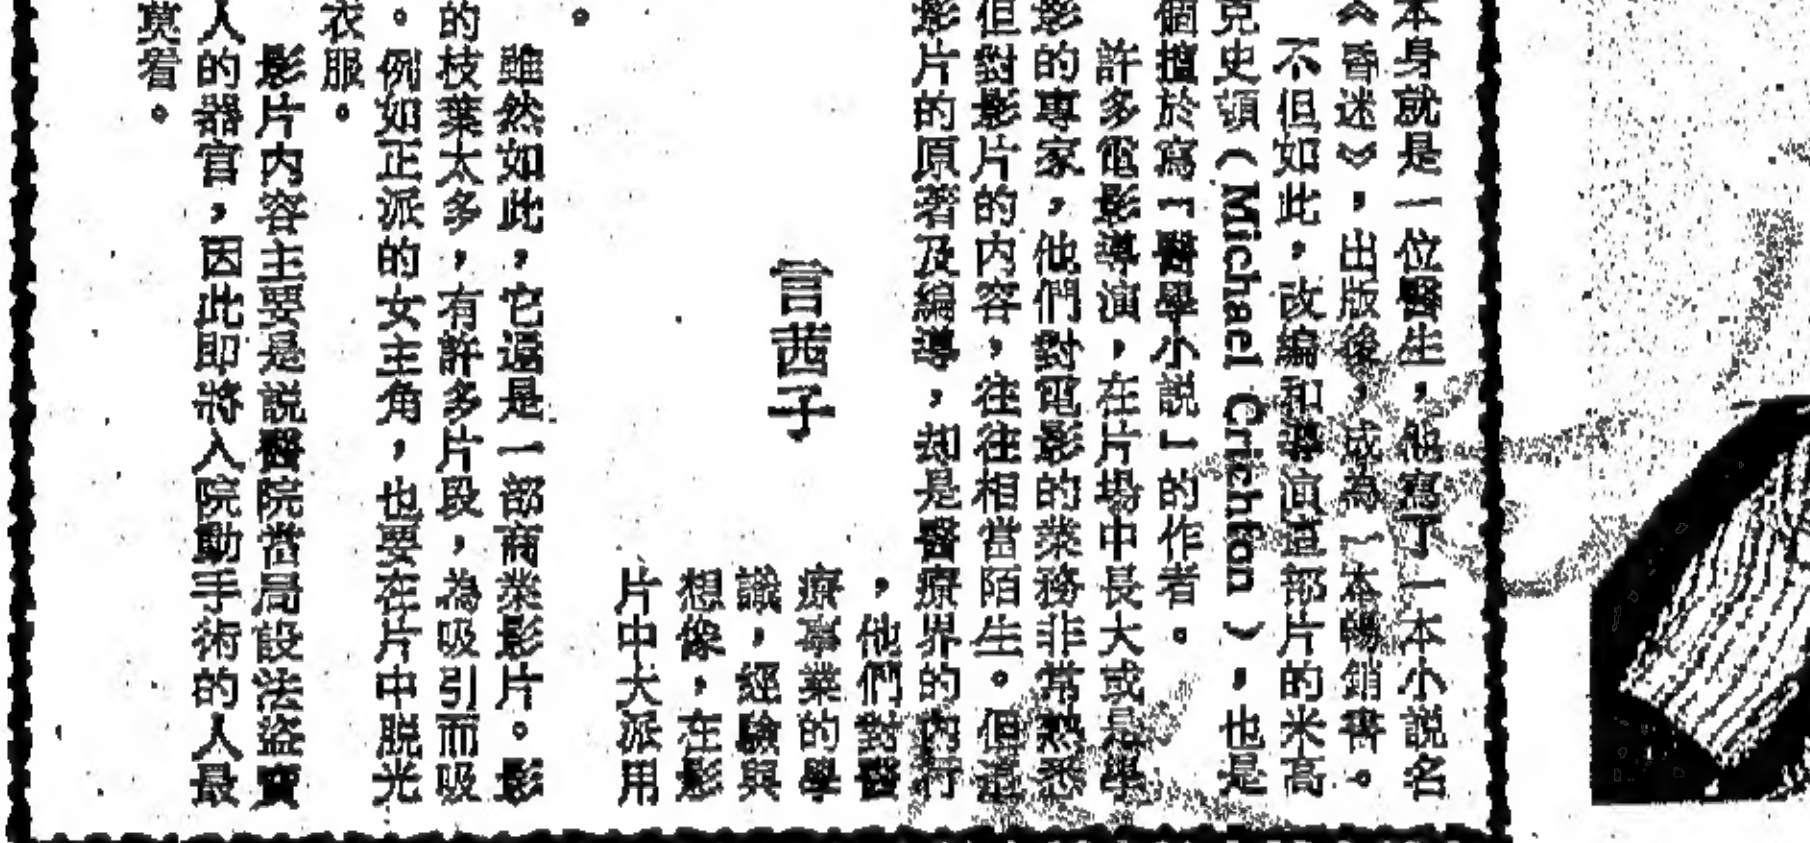 本身就是一位醫生，他寫了一本小説名
《昏迷》，出版後，成為一本暢銷書。
不但如此，改編和導演這部片的米高
克史頓（Michael Crichton），也是
個擅於寫「醫學小説」的作者。
許多電影導演，在片場中長大或是學
影的專家，他們對電影的業務非常熟悉
但對影片的内容，往往相當陌生。但這
影片的原著及編導，却是醫療界的内行
，他們對醫
療事業的學
識，經驗與
想像，在影
片中大派用
。
言茜子
雖然如此，它還是一部商業影片。影
的枝葉太多，有許多片段，為吸引而吸
。例如正派的女主角，也要在片中脱光
衣服。
影片内容主要是説醫院當局設法盜賣
人的器官，因此即將入院動手術的人最
莫看。